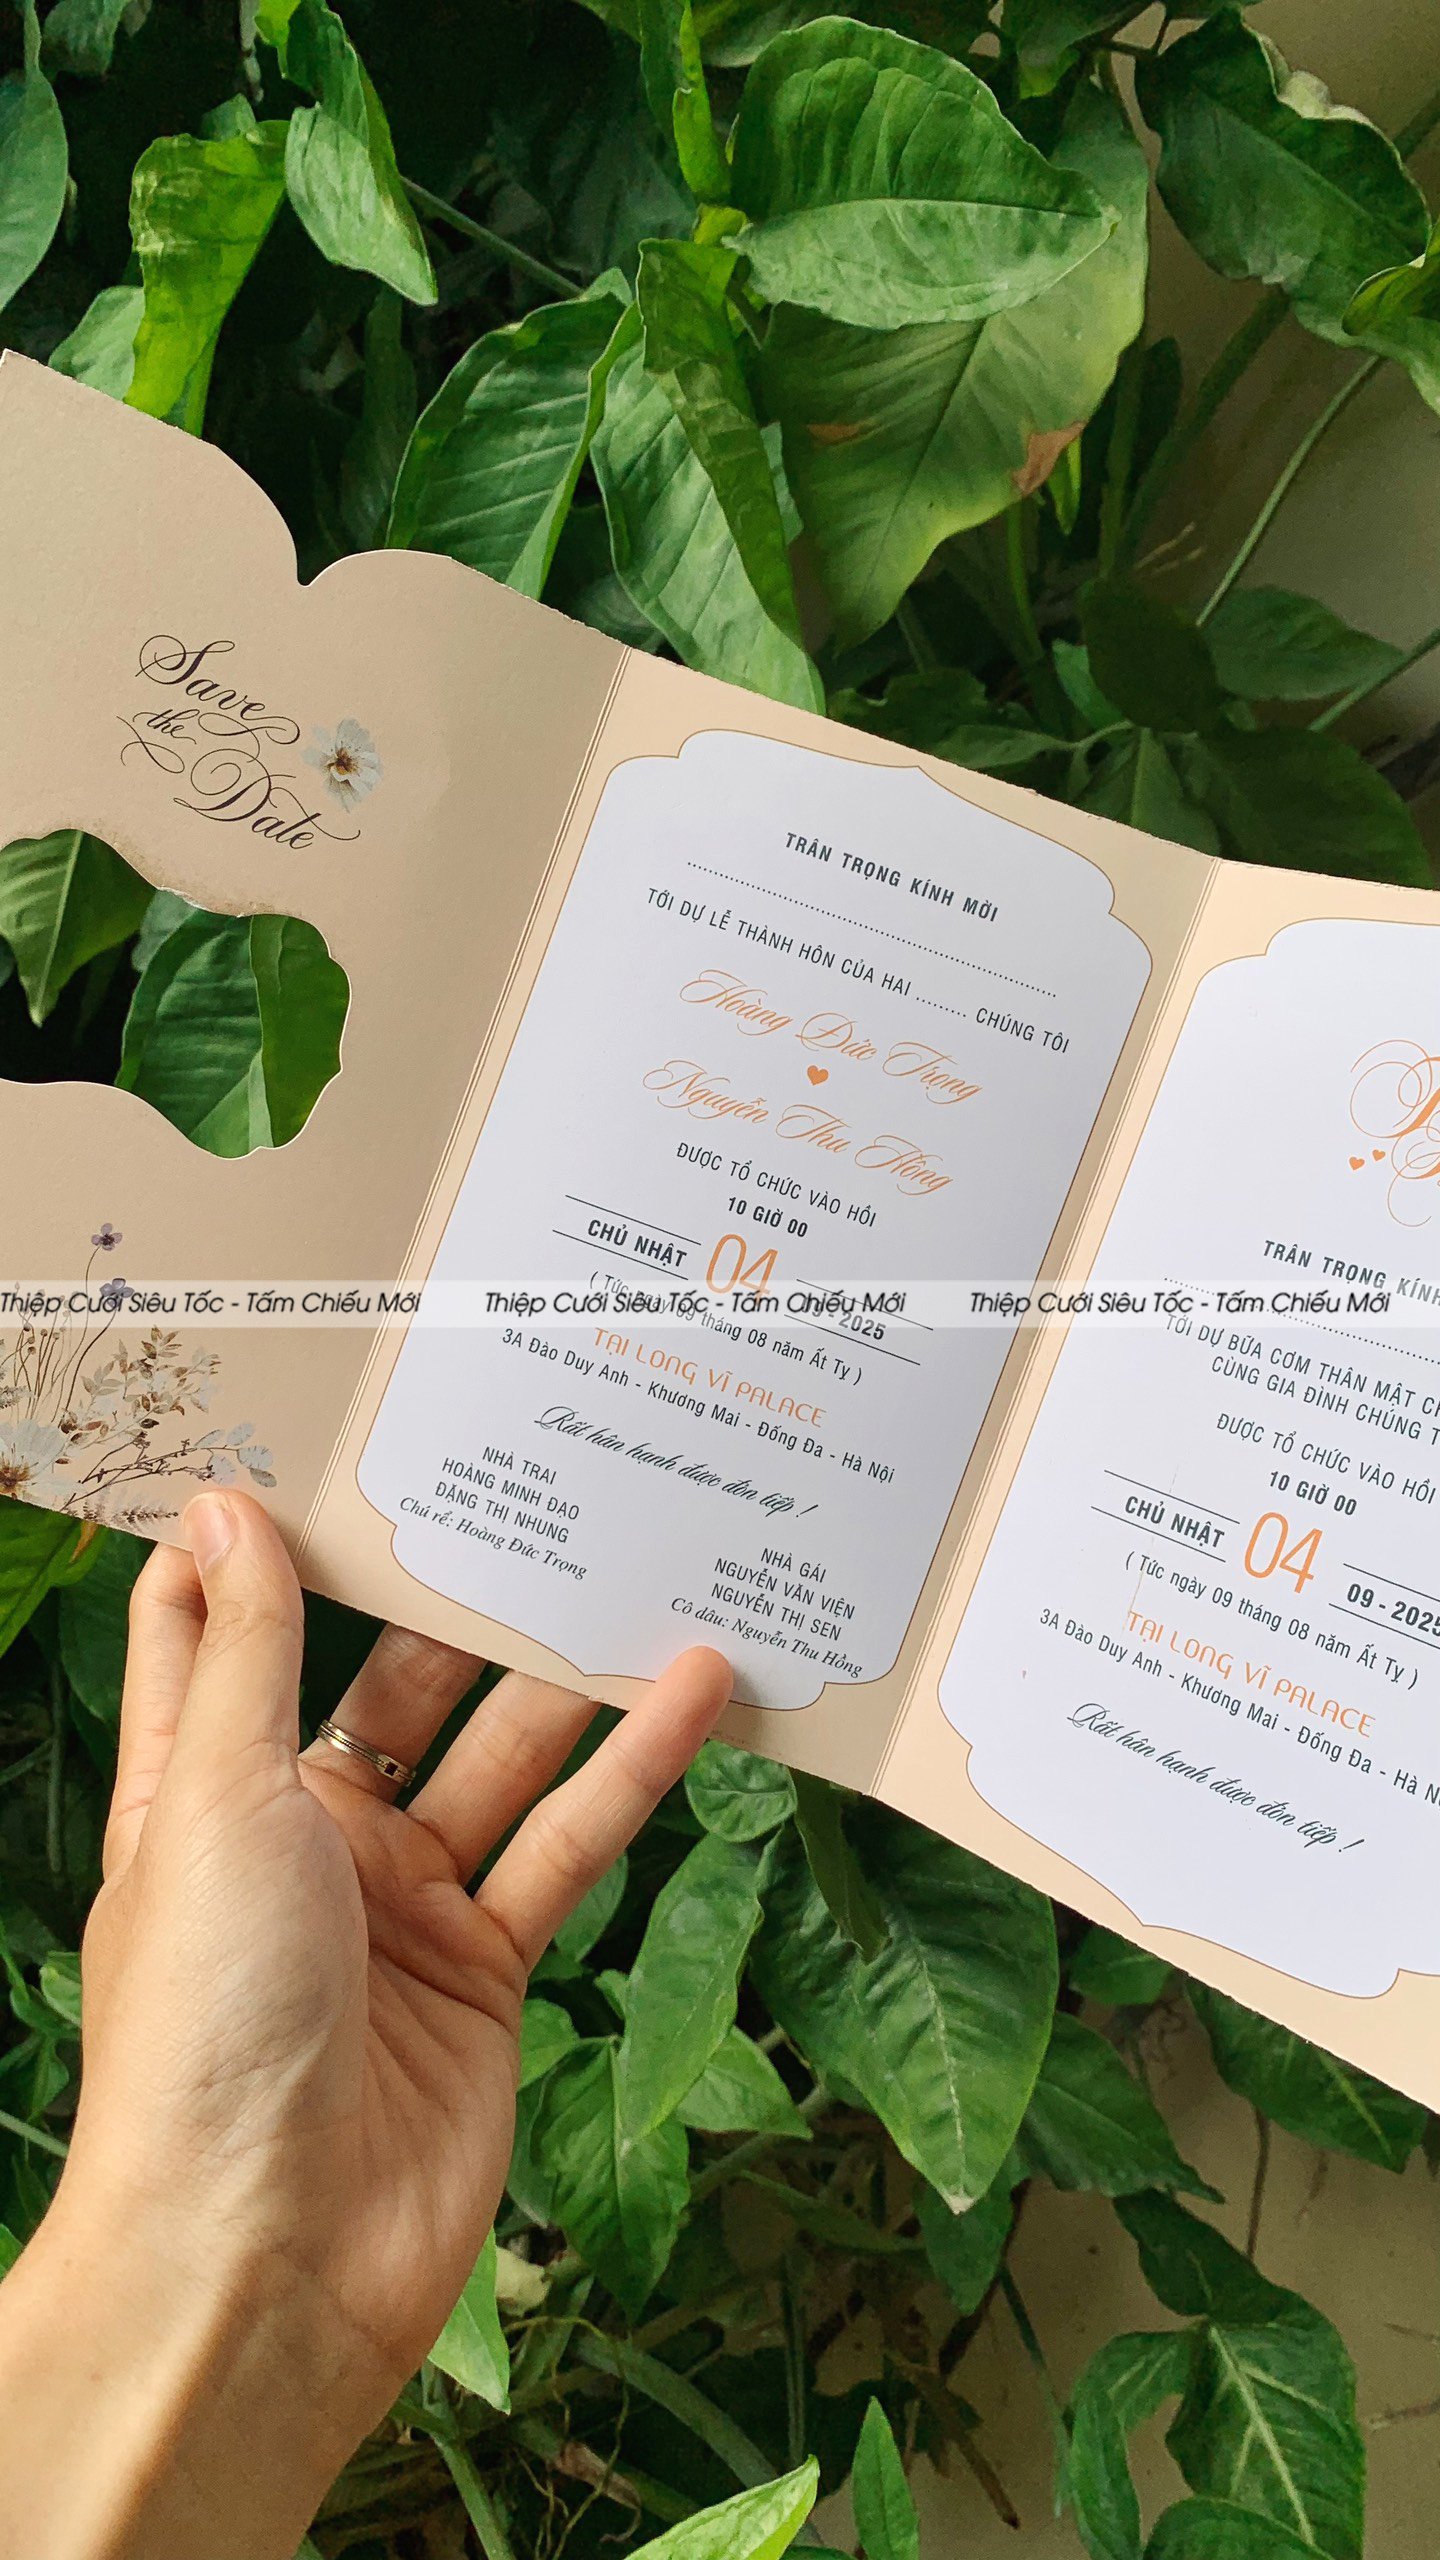 Save
the
Date
TRÂN TRỌNG KÍNH MỜI
TỚI DỰ LỄ THÀNH HÔN CỦA HAI ......... CHÚNG TÔI
Hoàng Đức Trọng
Nguyễn Thu Hồng
ĐƯỢC TỔ CHỨC VÀO HỒI
10 GIỜ 00
CHỦ NHẬT 04 09 - 2025
( Tức ngày 09 tháng 08 năm Ất Tỵ )
TẠI LONG VĨ PALACE
3A Đào Duy Anh - Khương Mai - Đống Đa - Hà Nội
Rất hân hạnh được đón tiếp !
NHÀ TRAI
HOÀNG MINH ĐẠO
ĐẶNG THỊ NHUNG
Chú rể: Hoàng Đức Trọng
NHÀ GÁI
NGUYỄN VĂN VIỆN
NGUYỄN THỊ SEN
Cô dâu: Nguyễn Thu Hồng
TRÂN TRỌNG KÍNH
TỚI DỰ BỮA CƠM THÂN MẬT
CÙNG GIA ĐÌNH CHÚNG
ĐƯỢC TỔ CHỨC VÀO HỒI
10 GIỜ 00
CHỦ NHẬT 04 09 - 2025
( Tức ngày 09 tháng 08 năm Ất Tỵ )
TẠI LONG VĨ PALACE
3A Đào Duy Anh - Khương Mai - Đống Đa - Hà
Rất hân hạnh được đón tiếp !
Thiệp Cưới Siêu Tốc - Tấm Chiếu Mới Thiệp Cưới Siêu Tốc - Tấm Chiếu Mới Thiệp Cưới Siêu Tốc - Tấm Chiếu Mới